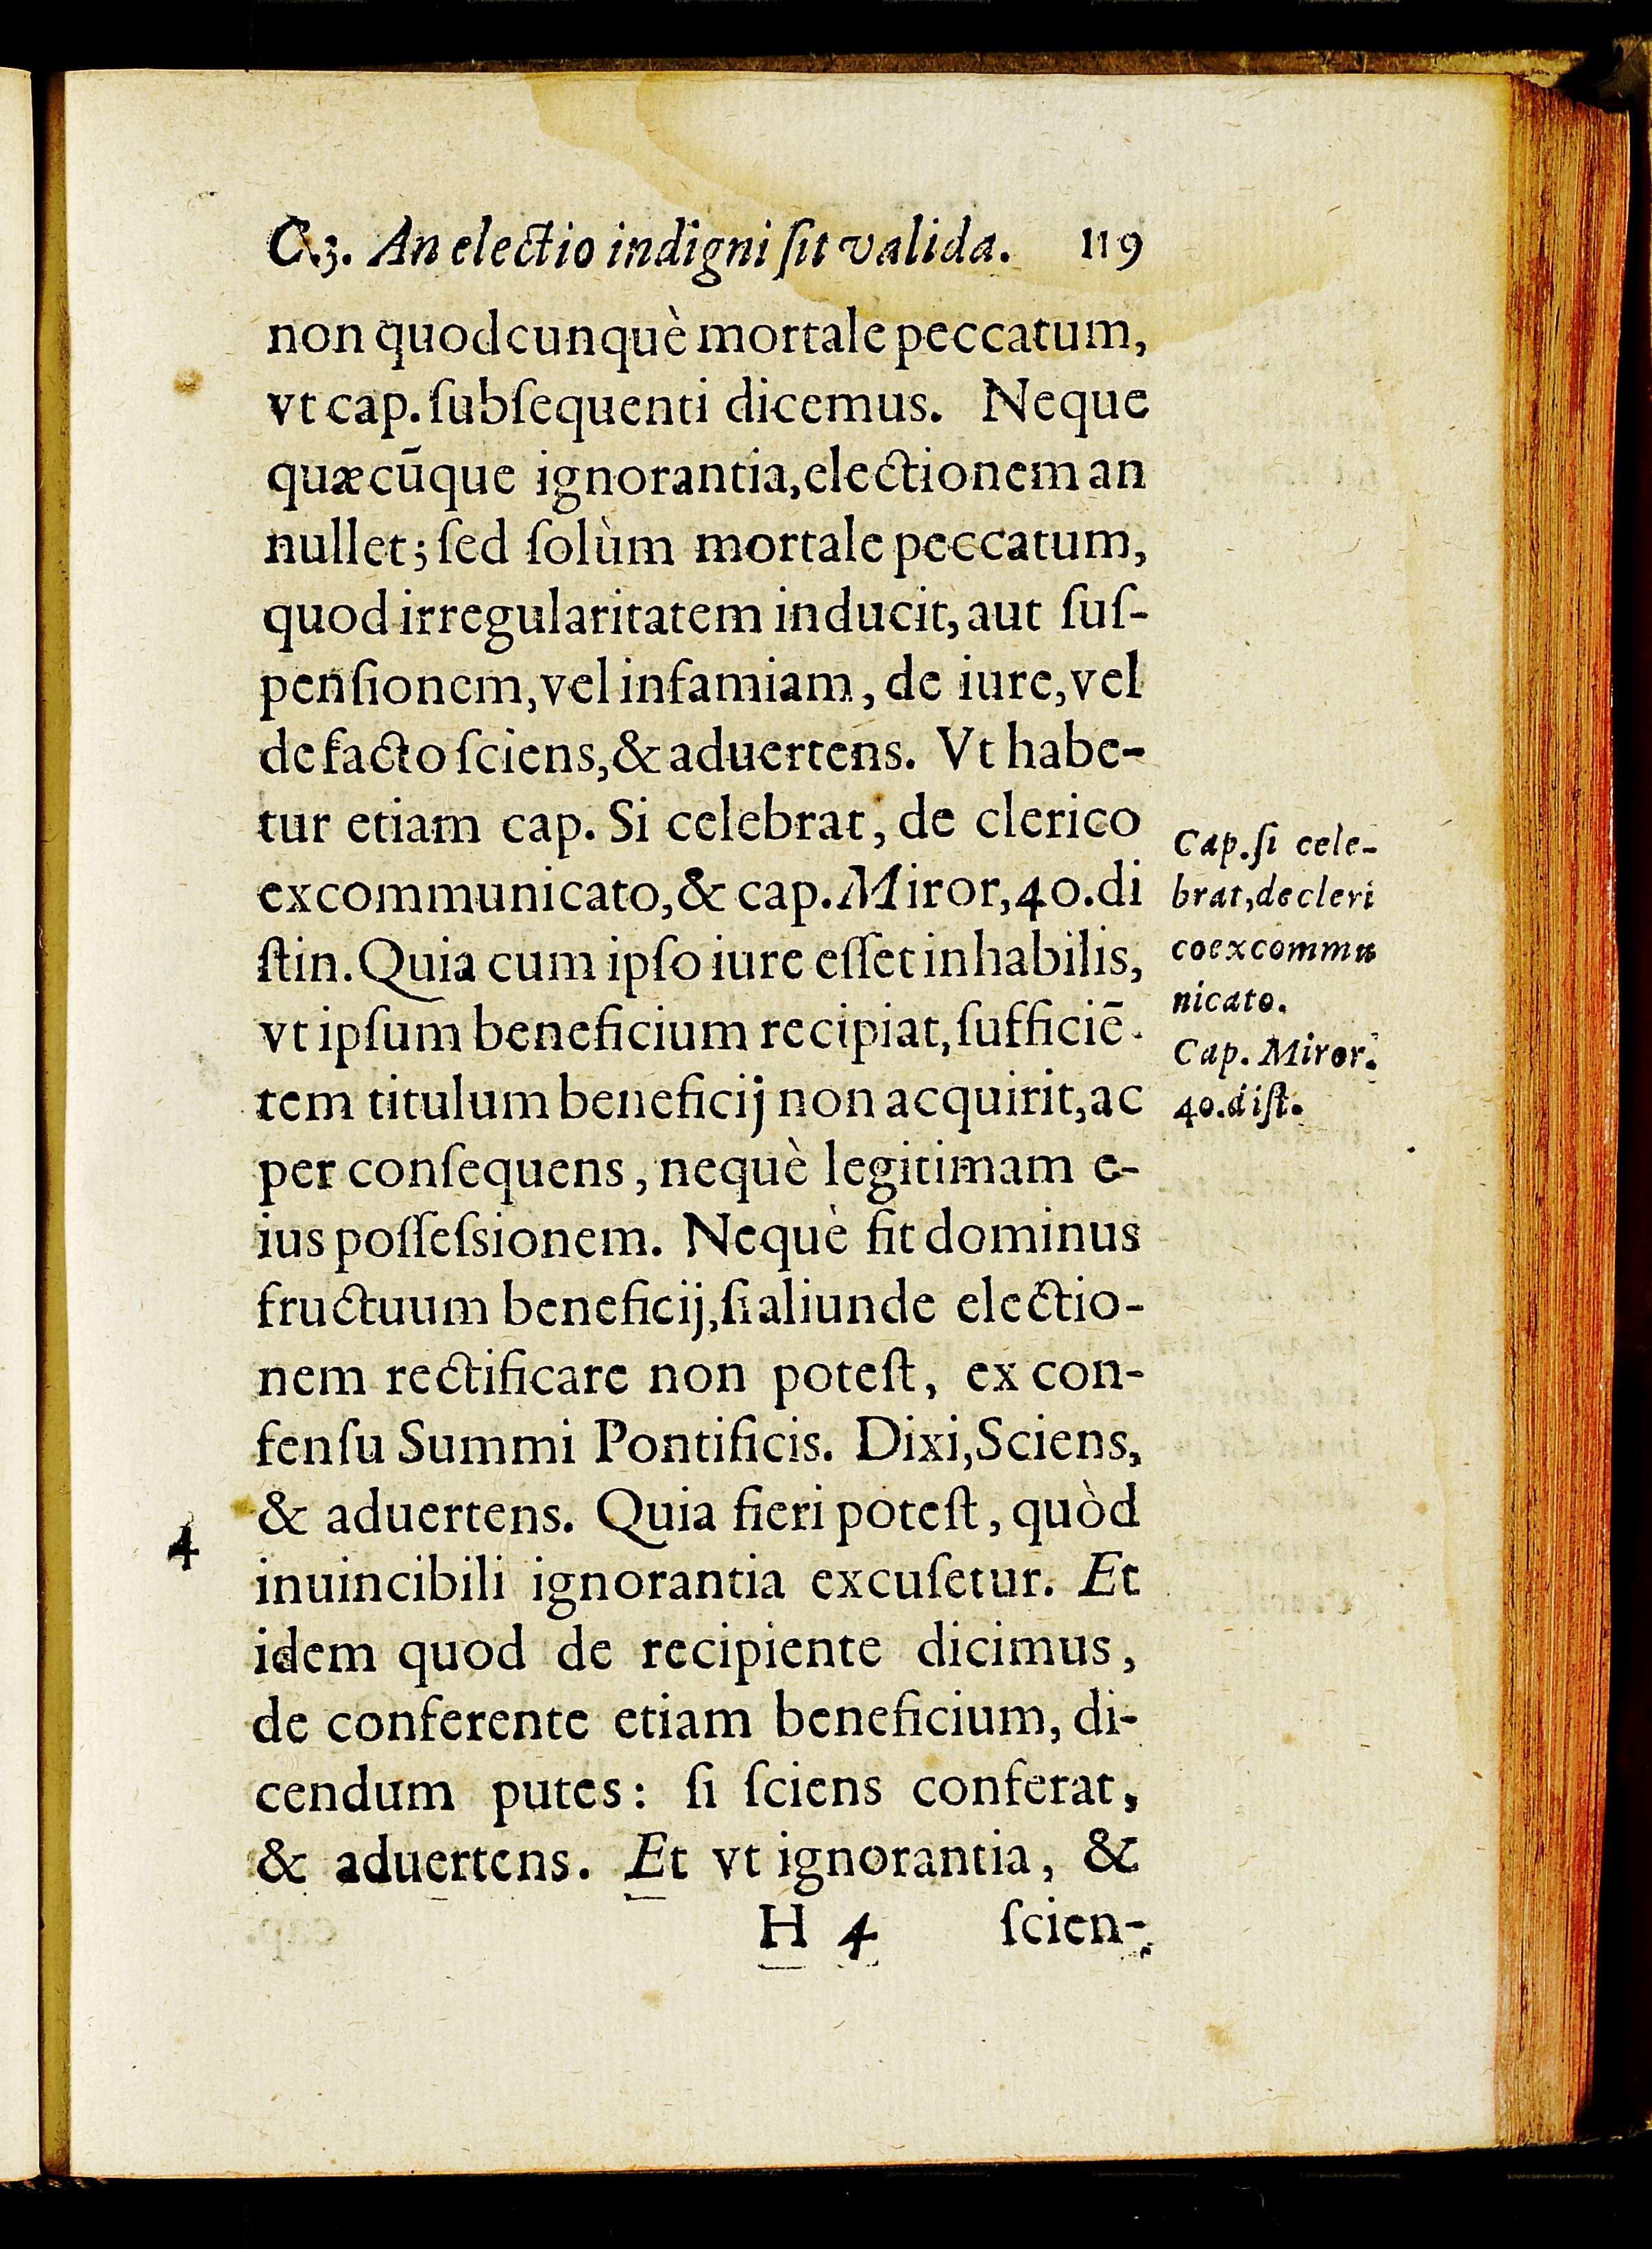 C.3. An electio indigni ſit valida. 119
non quodcunquè mortale peccatum,
vt cap. ſubſequenti dicemus. Neque
quæcūque ignorantia, electionem an
nullet; ſed ſolùm mortale peccatum,
quod irregularitatem inducit, aut ſuſ-
penſionem, vel infamiam, de iure, vel
de facto ſciens, & aduertens. Vt habe-
tur etiam cap. Si celebrat, de clerico
excommunicato, & cap. Miror, 40. di
ſtin. Quia cum ipſo iure eſſet inhabilis,
vt ipſum beneficium recipiat, ſufficiē-
tem titulum beneficij non acquirit, ac
per conſequens, nequè legitimam e-
ius poſſeſsionem. Nequè fit dominus
fructuum beneficij, ſi aliunde electio-
nem rectificare non poteſt, ex con-
ſenſu Summi Pontificis. Dixi, Sciens,
& aduertens. Quia fieri poteſt, quòd
inuincibili ignorantia excuſetur. Et
idem quod de recipiente dicimus,
de conferente etiam beneficium, di-
cendum putes: ſi ſciens conferat,
& aduertens. Et vt ignorantia, &
H 4 ſcien-
Cap. ſi cele-
brat, de cleri
co excommu
nicato.
Cap. Miror.
40. diſt.
4